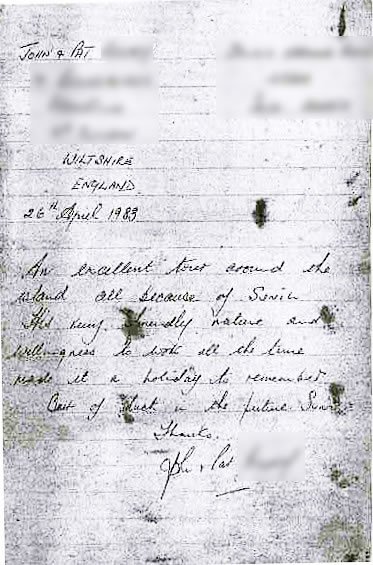 JOHN & PAT
WILTSHIRE
ENGLAND.
26th April 1983
An excellent tour around the
island all because of Sunin
His very friendly nature and
willingness to work all the time
made it a holiday to remember
Best of luck in the future Sunin
Thanks.
John & Pat